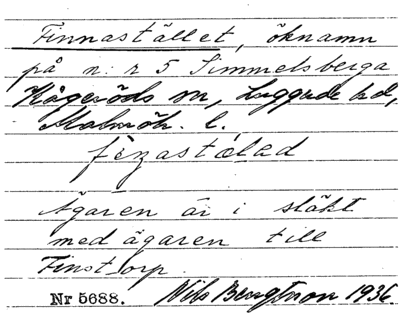 Finnastället, öknamn
på n:r 5 Simmelsberga
Kågeröds sn, Luggude hd,
Malmöh. l.
Ägaren är i släkt
med ägaren till
Finstorp
Nr 5688. Nils Bengtsson 1936.